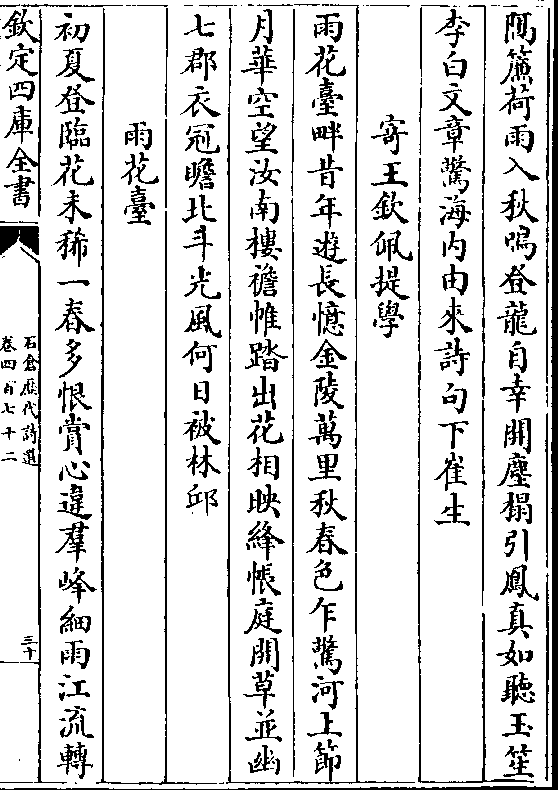 隔簾荷雨入秋鳴登龍自幸開塵榻引鳳真如聽玉笙
李白文章驚海内由來詩句下崔生
寄王欽佩提學
雨花臺畔昔年遊長憶金陵萬里秋春色乍驚河上節
月華空望汝南樓襜帷踏出花相映絳帳庭開草並幽
七郡衣冠瞻北斗光風何日被林邱
雨花臺
初夏登臨花未稀一春多恨賞心違羣峰細雨江流轉
欽定四庫全書
石倉歴代詩選
卷四百七十二
三十